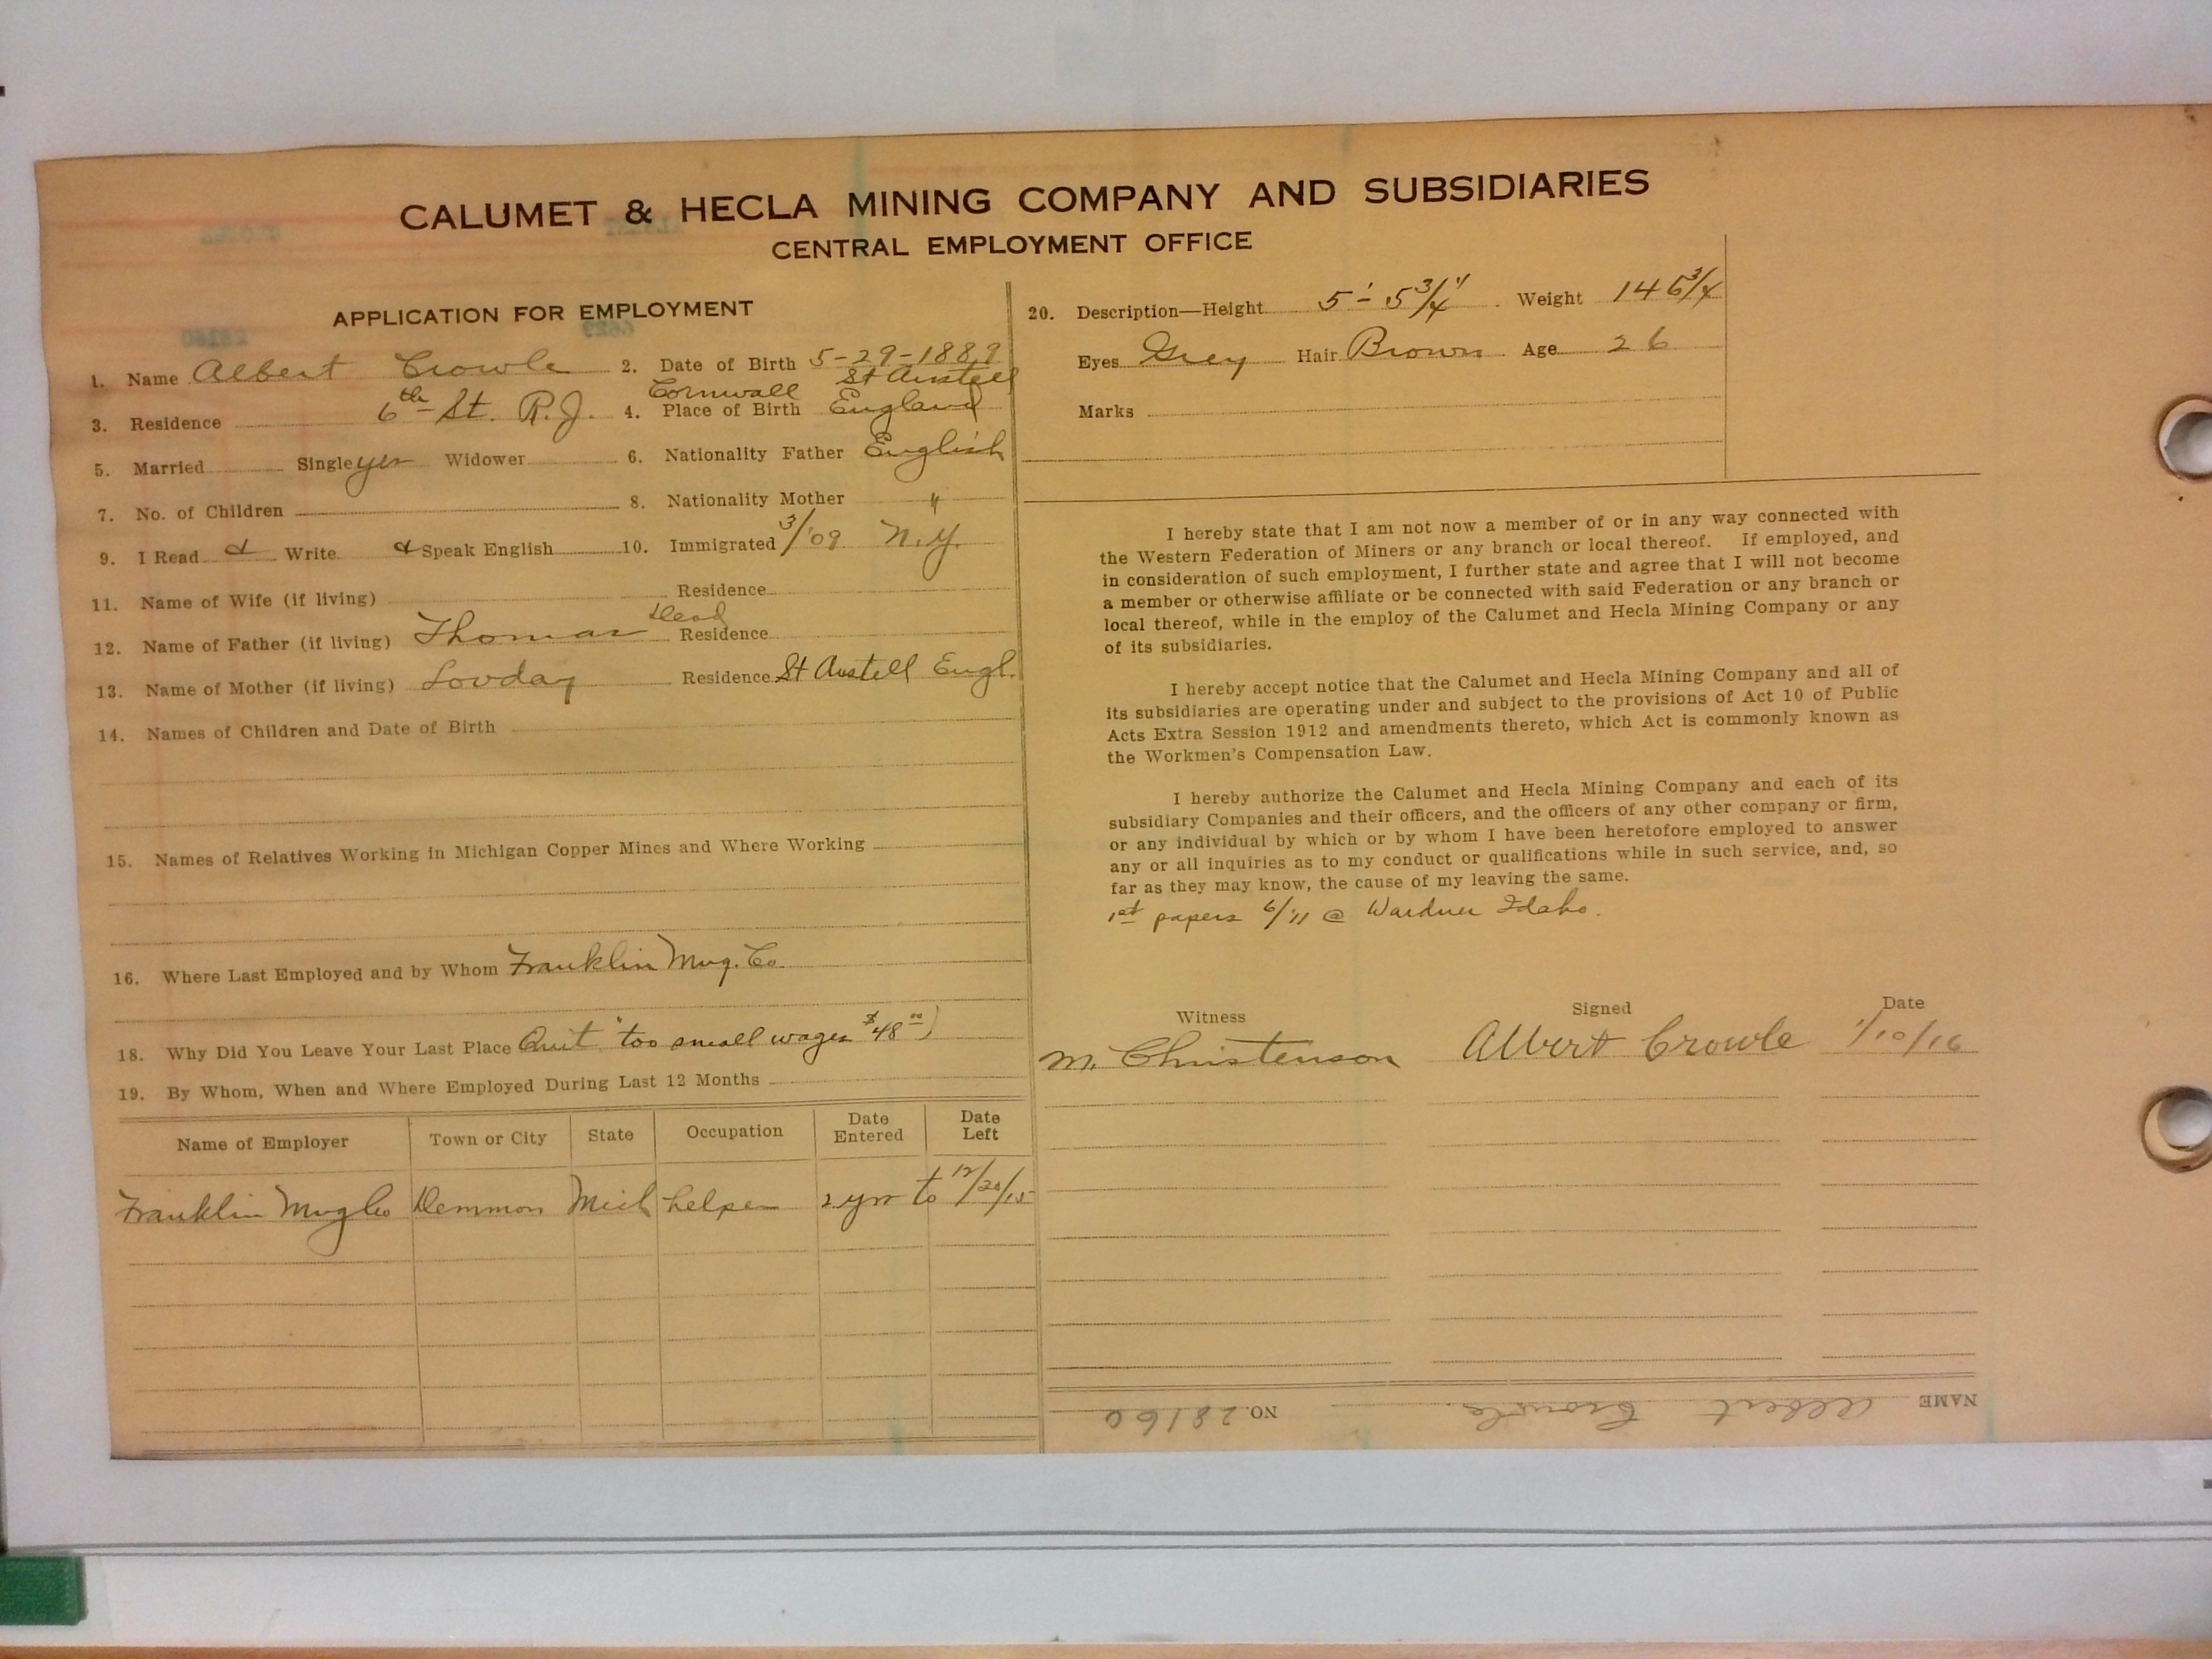 CALUMET & HECLA MINING COMPANY AND SUBSIDIARIES
CENTRAL EMPLOYMENT OFFICE
APPLICATION FOR EMPLOYMENT
1. Name Albert Crowle 2. Date of Birth 5-29-1889
3. Residence 6th St. R.J. 4. Place of Birth Cornwall St Austell England
5. Married Single yes Widower 6. Nationality Father English
7. No. of Children 8. Nationality Mother "
9. I Read & Write & Speak English 10. Immigrated 3/'09 N.Y.
11. Name of Wife (if living) Residence
12. Name of Father (if living) Thomas Dead Residence
13. Name of Mother (if living) Lovday Residence St Austell Engl.
14. Names of Children and Date of Birth
15. Names of Relatives Working in Michigan Copper Mines and Where Working
16. Where Last Employed and by Whom Franklin Mng. Co
18. Why Did You Leave Your Last Place Quit "too small wages $48 00)
19. By Whom, When and Where Employed During Last 12 Months
Name of Employer Town or City State Occupation Date Entered Date Left
Franklin Mng Co Demmon Mich helper 2 yrs to 12/20/15
20. Description—Height 5'-5 3/4" Weight 146 3/4
Eyes Grey Hair Brown Age 26
Marks
I hereby state that I am not now a member of or in any way connected with
the Western Federation of Miners or any branch or local thereof. If employed, and
in consideration of such employment, I further state and agree that I will not become
a member or otherwise affiliate or be connected with said Federation or any branch or
local thereof, while in the employ of the Calumet and Hecla Mining Company or any
of its subsidiaries.
I hereby accept notice that the Calumet and Hecla Mining Company and all of
its subsidiaries are operating under and subject to the provisions of Act 10 of Public
Acts Extra Session 1912 and amendments thereto, which Act is commonly known as
the Workmen's Compensation Law.
I hereby authorize the Calumet and Hecla Mining Company and each of its
subsidiary Companies and their officers, and the officers of any other company or firm,
or any individual by which or by whom I have been heretofore employed to answer
any or all inquiries as to my conduct or qualifications while in such service, and, so
far as they may know, the cause of my leaving the same.
1st papers 6/'11 @ Wardner Idaho.
Witness Signed Date
M. Christenson Albert Crowle 1/10/16
NAME Albert Crowle NO. 28160